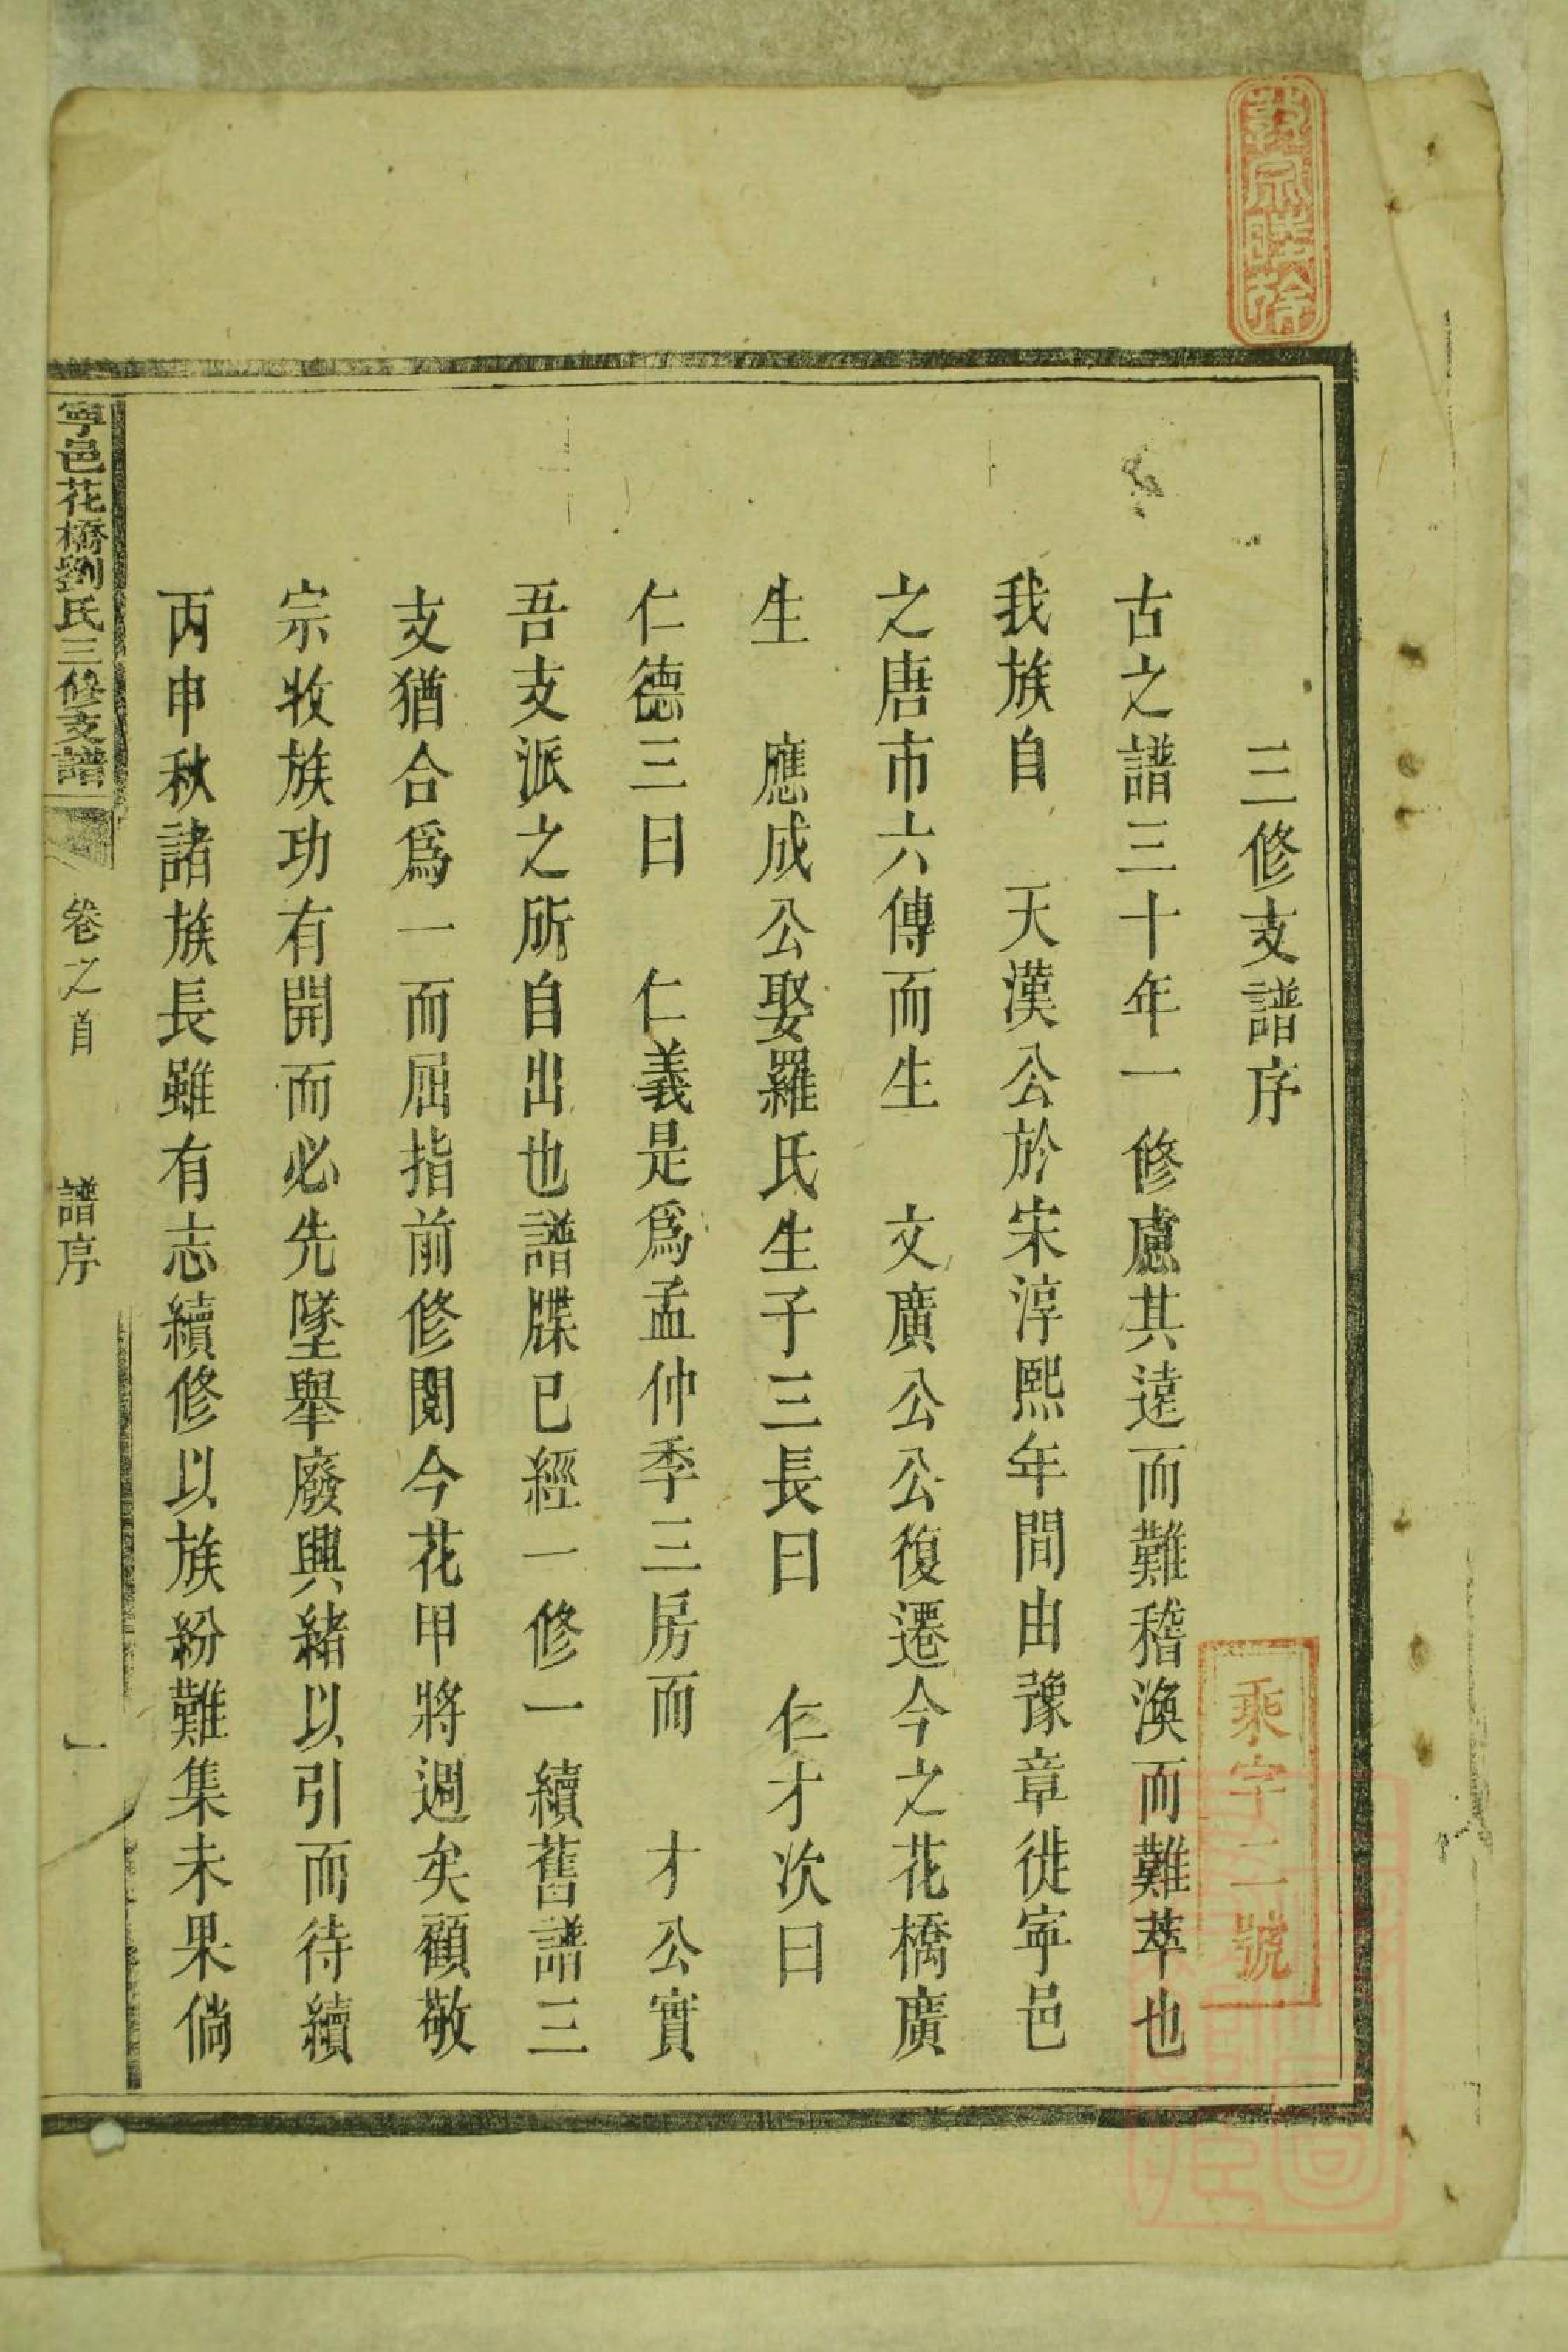 三修支譜序
古之譜三十年一修慮其遠而難稽渙而難萃也
我族自　天漢公於宋淳熙年間由豫章徙寕邑
之唐市六傳而生　文廣公公復遷今之花橋廣
生　應成公娶羅氏生子三長曰　仁才次曰
仁德三曰　仁義是爲孟仲季三房而　才公實
吾支派之所自出也譜牒已經一修一續舊譜三
支猶合爲一而屈指前修閱今花甲將週矣顧敬
宗收族功有開而必先墜舉廢興緒以引而待續
丙申秋諸族長雖有志續修以族紛難集未果倘
寧邑花橋劉氏三修支譜　卷之首　譜序　一
乘字二號